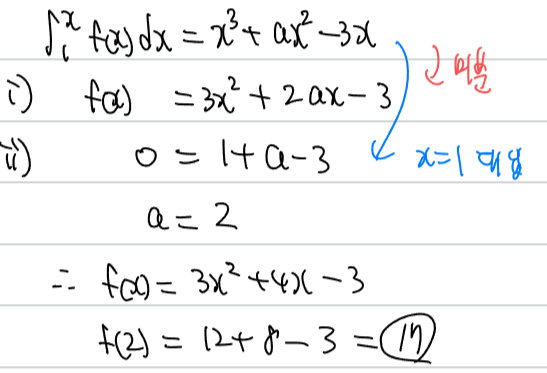 ∫₁ˣ f(x)dx = x³ + ax² - 3x
미분
i) f(x) = 3x² + 2ax - 3
ii) 0 = 1 + a - 3
x=1 대입
a = 2
∴ f(x) = 3x² + 4x - 3
f(2) = 12 + 8 - 3 = 17